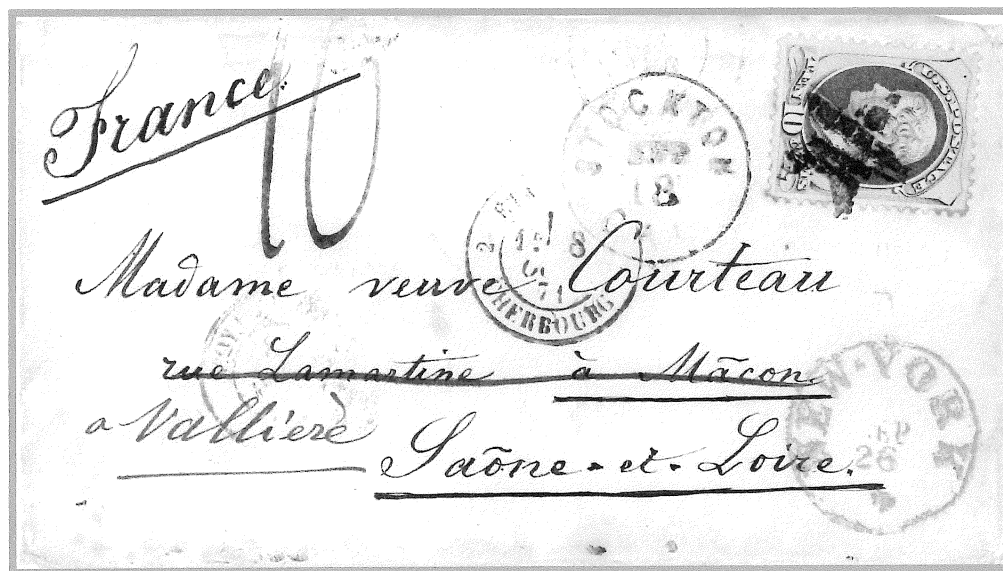 France.
10
STOCKTON
SEP
18
8
71
CHERBOURG
Madame veuve Courteau
rue Lamartine à Mâcon.
a Vallière
Saône-et-Loire.
NEW-YORK
SEP
26